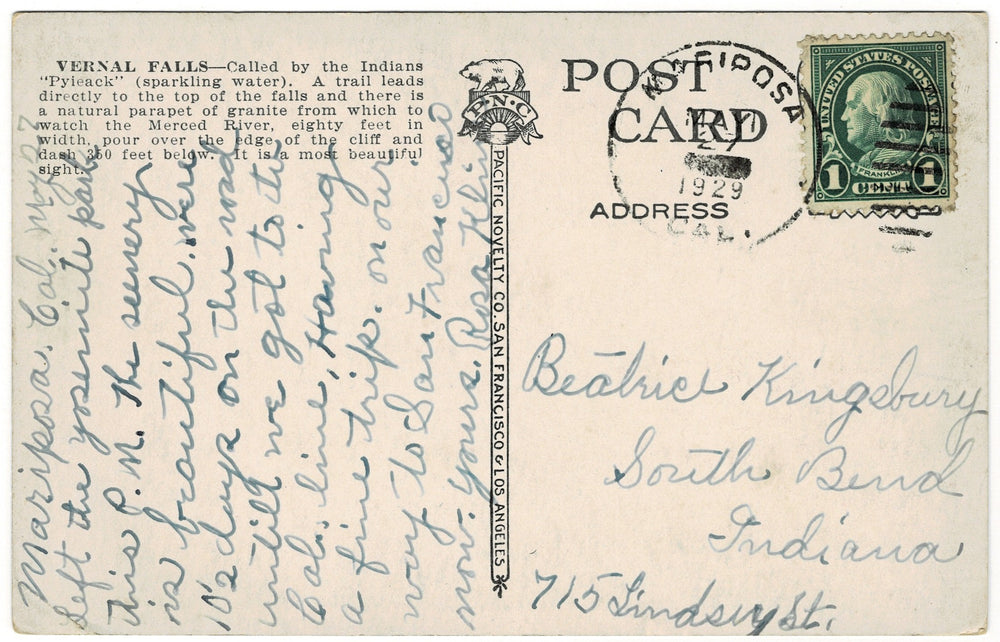 VERNAL FALLS—Called by the Indians
"Pyieack" (sparkling water). A trail leads
directly to the top of the falls and there is
a natural parapet of granite from which to
watch the Merced River, eighty feet in
width, pour over the edge of the cliff and
dash 350 feet below. It is a most beautiful
sight.
Mariposa. Cal. May 27
Left the yosemite park,
this P.M. The scenery
is beautiful. were
10 2 days on the road
untill we got to the
Cal. line, Having
a fine trip. on our
way to San Francisco
now. yours. Rosa
P.N.C.
PACIFIC NOVELTY CO. SAN FRANCISCO & LOS ANGELES
POST
CARD
ADDRESS
MARIPOSA
MAY
27
1929
CAL.
UNITED STATES POSTAGE
FRANKLIN
1 CENT 1
Beatrice Kingsbury
South Bend
Indiana
715 Lindsey St.